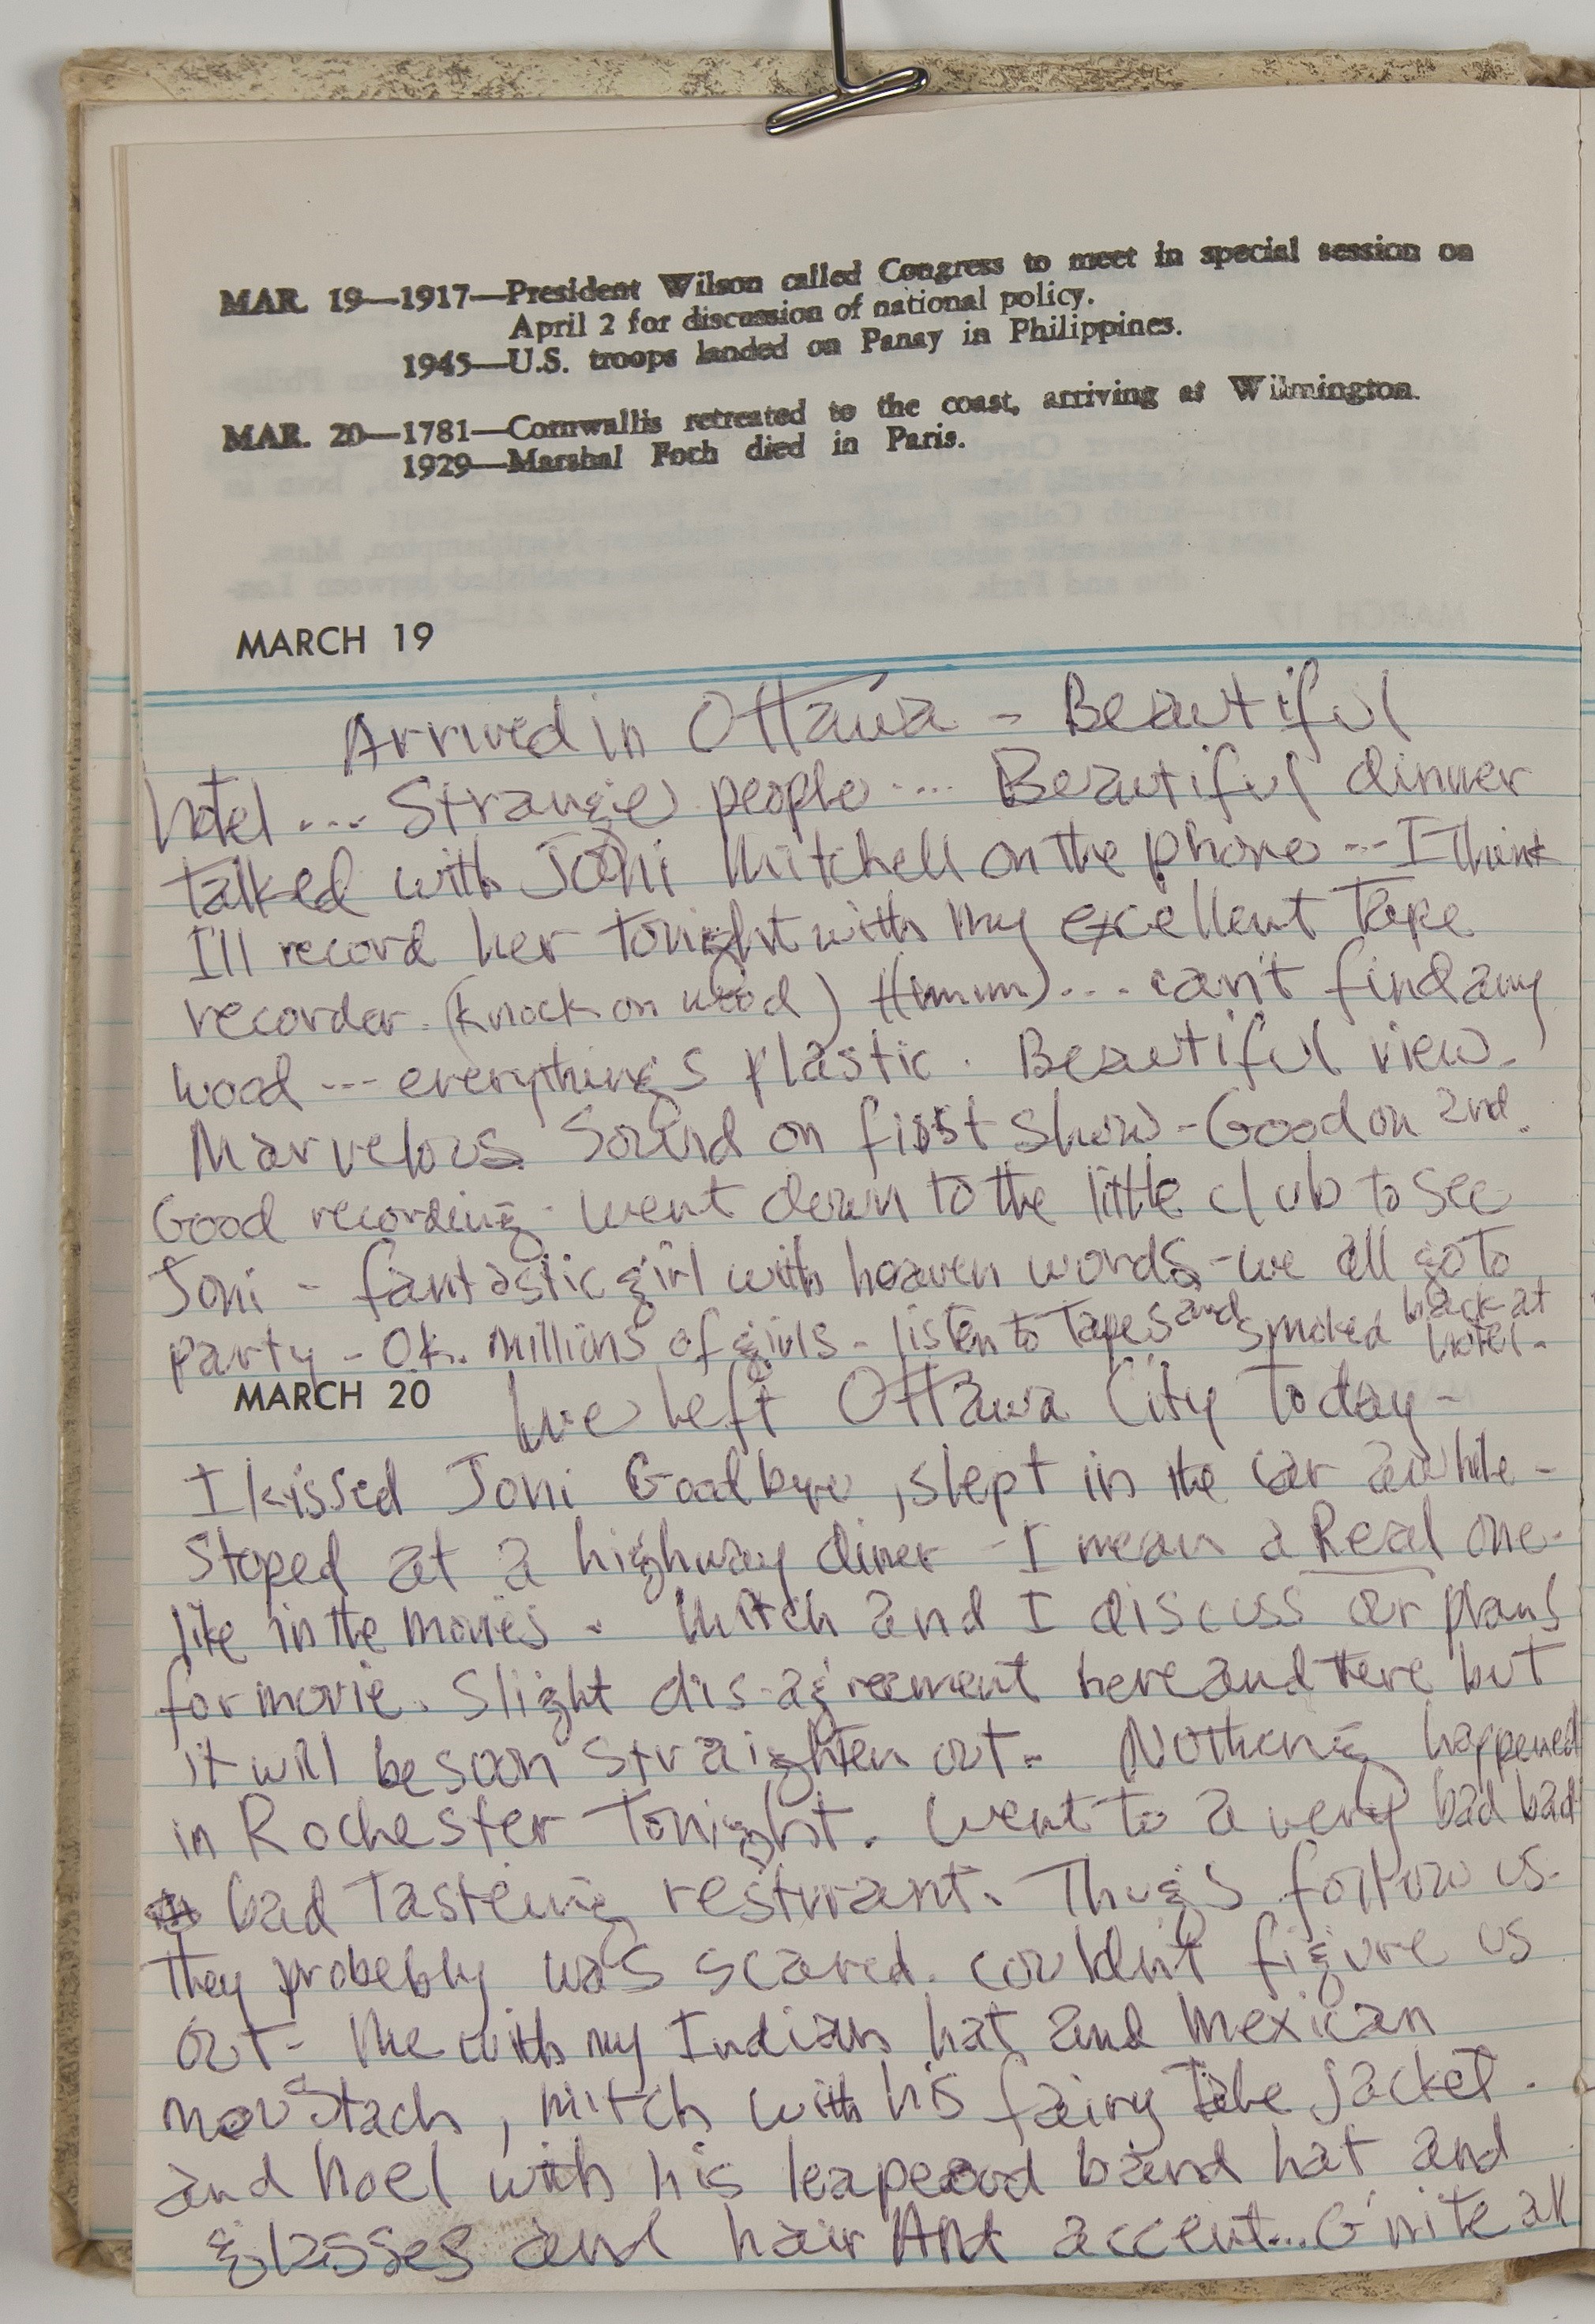 MAR. 19—1917—President Wilson called Congress to meet in special session on
April 2 for discussion of national policy.
1945—U.S. troops landed on Panay in Philippines.
MAR. 20—1781—Cornwallis retreated to the coast, arriving at Wilmington.
1929—Marshal Foch died in Paris.
MARCH 19
Arrived in Ottawa - Beautiful
hotel ... Strange people .... Beautiful dinner
talked with Joni Mitchell on the phone ... I think
I'll record her tonight with my excellent tape
recorder. (knock on wood) Hmmm) ... can't find any
wood --- everything's plastic. Beautiful view.
Marvelous sound on first show - Good on 2nd.
Good recording. went down to the little club to see
Joni - fantastic girl with heaven words - we all go to
party - O.K. millions of girls - listen to tapes and smoked back at hotel.
MARCH 20 We left Ottawa City today -
I kissed Joni Goodbye, slept in the car awhile -
Stoped at a highway diner - I mean a Real one -
like in the movies. Mitch and I discuss our plans
for movie. Slight dis-agreement here and there but
it will be soon straighten out. Nothing happened
in Rochester tonight. Went to a very bad bad
bad tasteing resturant. Thugs follow us.
They probebly was scared. couldn't figure us
out - Me with my Indian hat and Mexican
moustach, mitch with his fairy tale jacket.
and Noel with his leapeard band hat and
glasses and hair And accent... G'nite all